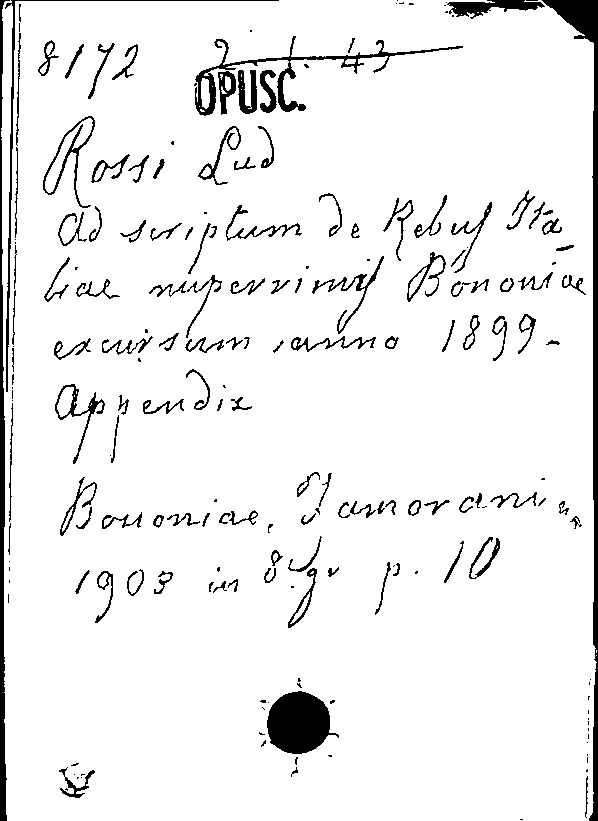 8172 2. 1. 43
OPUSC.
Rossi Lud
Ad scriptum de Rebus Ita
liae nuperrimis Bononiae
excursum anno 1899-
Appendix
Bononiae,
1903 in 8. gr p. 10